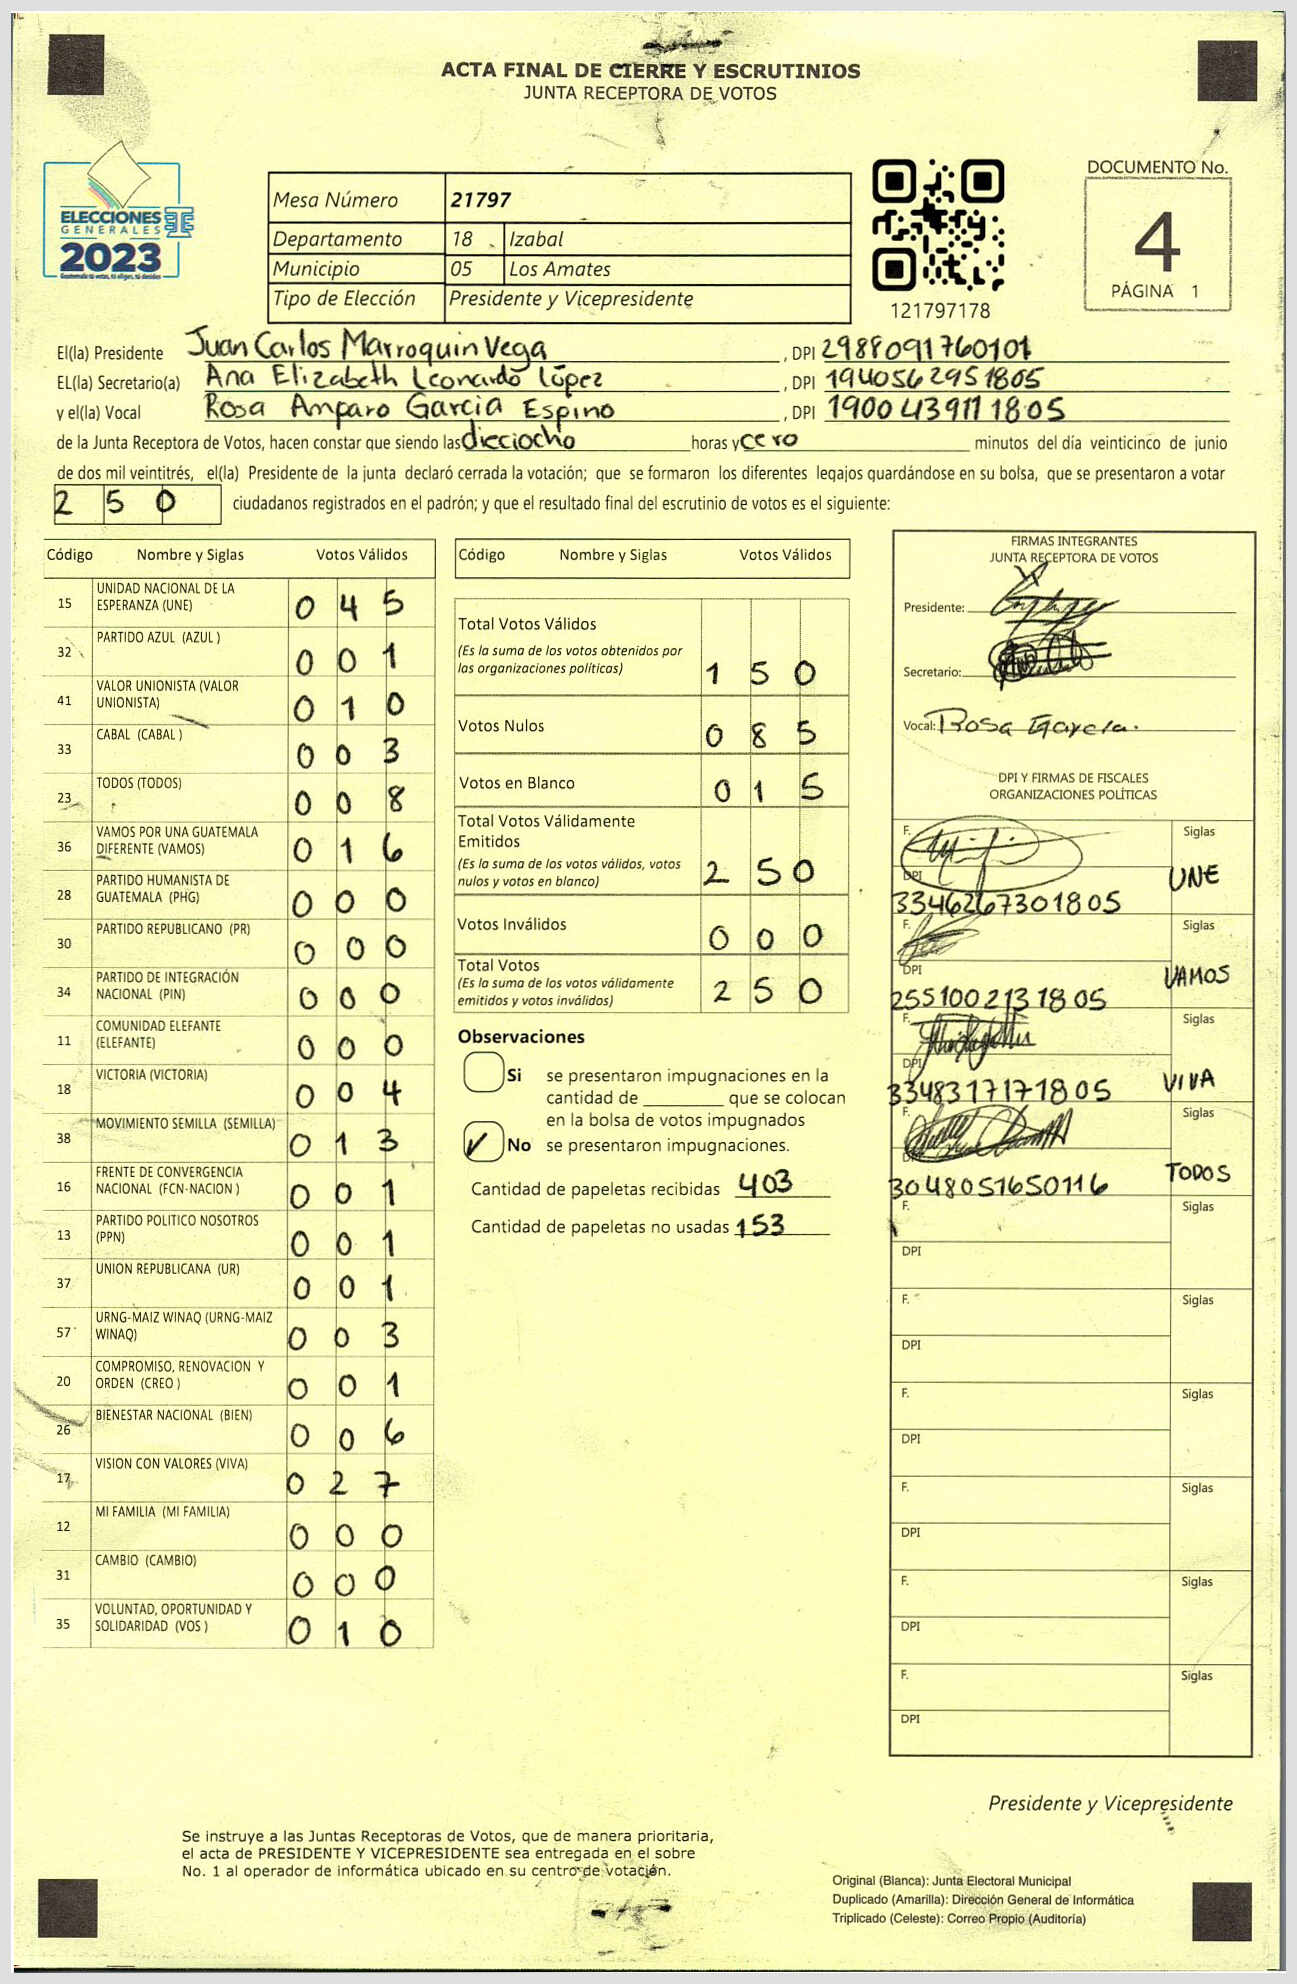 ACTA FINAL DE CIERRE Y ESCRUTINIOS
JUNTA RECEPTORA DE VOTOS
ELECCIONES
GENERALES
2023
Mesa Número 21797
Departamento 18 Izabal
Municipio 05 Los Amates
Tipo de Elección Presidente y Vicepresidente
121797178
DOCUMENTO No.
4
PÁGINA 1
El(la) Presidente Juan Carlos Marroquin Vega , DPI 2988091760101
EL(la) Secretario(a) Ana Elizabeth Leonardo López , DPI 1940562951805
y el(la) Vocal Rosa Amparo Garcia Espino , DPI 1900439111805
de la Junta Receptora de Votos, hacen constar que siendo las dieciocho horas y cero minutos del día veinticinco de junio
de dos mil veintitrés, el(la) Presidente de la junta declaró cerrada la votación; que se formaron los diferentes legajos guardándose en su bolsa, que se presentaron a votar
250 ciudadanos registrados en el padrón; y que el resultado final del escrutinio de votos es el siguiente:
Código Nombre y Siglas Votos Válidos
15 UNIDAD NACIONAL DE LA ESPERANZA (UNE) 045
32 PARTIDO AZUL (AZUL ) 001
41 VALOR UNIONISTA (VALOR UNIONISTA) 010
33 CABAL (CABAL ) 003
23 TODOS (TODOS) 008
36 VAMOS POR UNA GUATEMALA DIFERENTE (VAMOS) 016
28 PARTIDO HUMANISTA DE GUATEMALA (PHG) 000
30 PARTIDO REPUBLICANO (PR) 000
34 PARTIDO DE INTEGRACIÓN NACIONAL (PIN) 000
11 COMUNIDAD ELEFANTE (ELEFANTE) 000
18 VICTORIA (VICTORIA) 004
38 MOVIMIENTO SEMILLA (SEMILLA) 013
16 FRENTE DE CONVERGENCIA NACIONAL (FCN-NACION ) 001
13 PARTIDO POLITICO NOSOTROS (PPN) 001
37 UNION REPUBLICANA (UR) 001
57 URNG-MAIZ WINAQ (URNG-MAIZ WINAQ) 003
20 COMPROMISO, RENOVACION Y ORDEN (CREO ) 001
26 BIENESTAR NACIONAL (BIEN) 006
17 VISION CON VALORES (VIVA) 027
12 MI FAMILIA (MI FAMILIA) 000
31 CAMBIO (CAMBIO) 000
35 VOLUNTAD, OPORTUNIDAD Y SOLIDARIDAD (VOS ) 010
Código Nombre y Siglas Votos Válidos
Total Votos Válidos
(Es la suma de los votos obtenidos por
las organizaciones políticas) 150
Votos Nulos 085
Votos en Blanco 015
Total Votos Válidamente
Emitidos
(Es la suma de los votos válidos, votos
nulos y votos en blanco) 250
Votos Inválidos 000
Total Votos
(Es la suma de los votos válidamente
emitidos y votos inválidos) 250
Observaciones
Si se presentaron impugnaciones en la
cantidad de ________ que se colocan
en la bolsa de votos impugnados
No se presentaron impugnaciones.
Cantidad de papeletas recibidas 403
Cantidad de papeletas no usadas 153
FIRMAS INTEGRANTES
JUNTA RECEPTORA DE VOTOS
Presidente:
Secretario:
Vocal: Rosa Garcia.
DPI Y FIRMAS DE FISCALES
ORGANIZACIONES POLÍTICAS
F. Siglas
DPI 3346267301805 UNE
F. Siglas
DPI 2551002131805 VAMOS
F. Siglas
DPI 3348317171805 VIVA
F. Siglas
DPI 3048051650116 TODOS
F. Siglas
DPI
F. Siglas
DPI
F. Siglas
DPI
F. Siglas
DPI
F. Siglas
DPI
F. Siglas
DPI
Presidente y Vicepresidente
Se instruye a las Juntas Receptoras de Votos, que de manera prioritaria,
el acta de PRESIDENTE Y VICEPRESIDENTE sea entregada en el sobre
No. 1 al operador de informática ubicado en su centro de votación.
Original (Blanca): Junta Electoral Municipal
Duplicado (Amarilla): Dirección General de Informática
Triplicado (Celeste): Correo Propio (Auditoría)